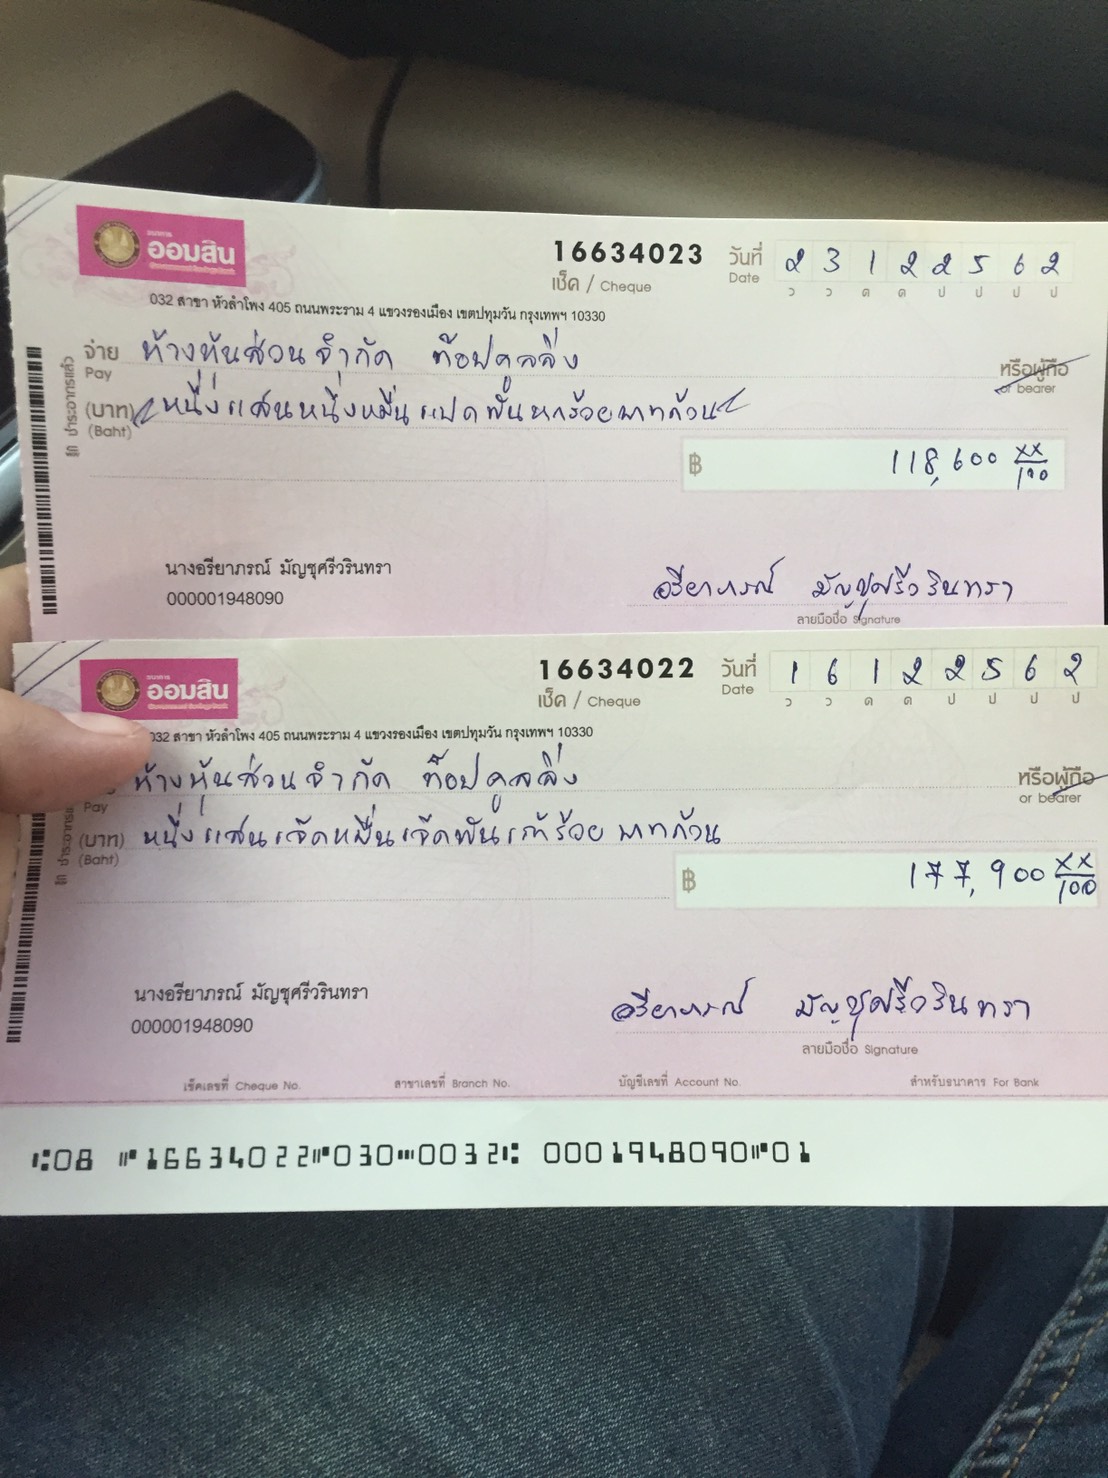 ธนาคาร
ออมสิน
16634023
เช็ค / Cheque
วันที่ 23122562
Date ว ว ด ด ป ป ป ป
032 สาขา หัวลำโพง 405 ถนนพระราม 4 แขวงรองเมือง เขตปทุมวัน กรุงเทพฯ 10330
จ่าย ห้างหุ้นส่วนจำกัด ท๊อปคูลลิ่ง หรือผู้ถือ
Pay or bearer
(บาท) หนึ่งแสนหนึ่งหมื่นแปดพันหกร้อยบาทถ้วน
(Baht)
฿ 118,600 XX/100
นางอรียาภรณ์ มัญชุศรีวรินทรา
000001948090
อรียาภรณ์ มัญชุศรีวรินทรา
ลายมือชื่อ Signature
ธนาคาร
ออมสิน
16634022
เช็ค / Cheque
วันที่ 16122562
Date ว ว ด ด ป ป ป ป
032 สาขา หัวลำโพง 405 ถนนพระราม 4 แขวงรองเมือง เขตปทุมวัน กรุงเทพฯ 10330
ห้างหุ้นส่วนจำกัด ท็อปคูลลิ่ง หรือผู้ถือ
Pay or bearer
(บาท) หนึ่งแสนเจ็ดหมื่นเจ็ดพันเก้าร้อยบาทถ้วน
(Baht)
฿ 177,900 XX/100
นางอรียาภรณ์ มัญชุศรีวรินทรา
000001948090
อรียาภรณ์ มัญชุศรีวรินทรา
ลายมือชื่อ Signature
เช็คเลขที่ Cheque No. สาขาเลขที่ Branch No. บัญชีเลขที่ Account No. สำหรับธนาคาร For Bank
⑆08 ⑈16634022⑈030⑉0032⑆ 0001948090⑈01